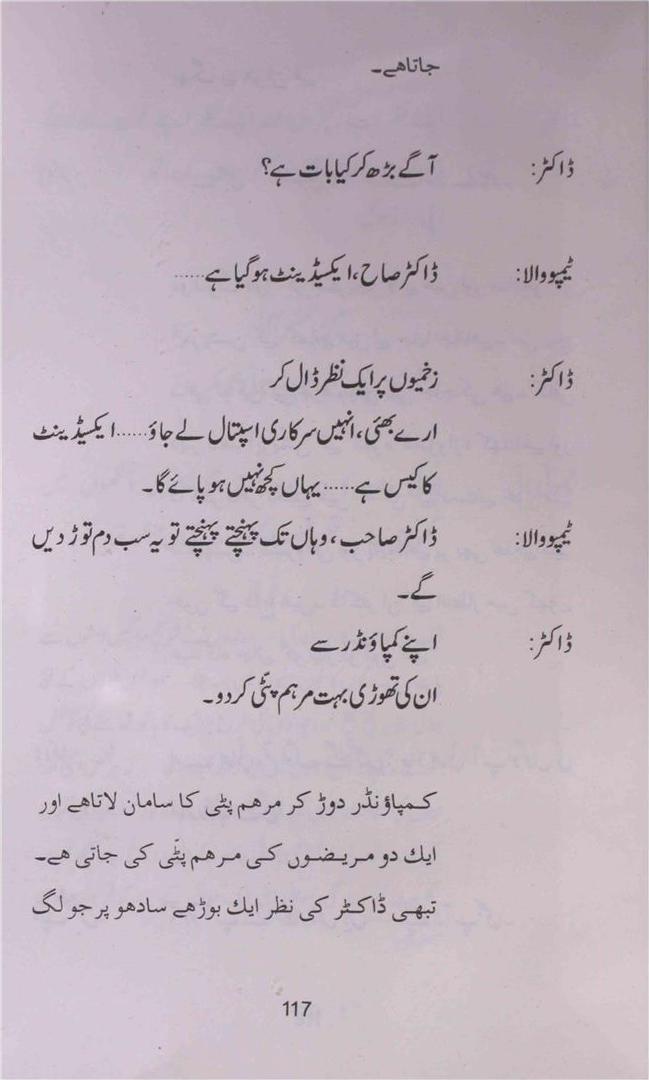 جاتاهے۔
ڈاکٹر: آگے بڑھ کر کیا بات ہے؟
ٹیمپو والا: ڈاکٹر صاح، ایکسیڈینٹ ہو گیا ہے......
ڈاکٹر: زخمیوں پر ایک نظر ڈال کر
ارے بھئی، انہیں سرکاری اسپتال لے جاؤ......ایکسیڈینٹ
کا کیس ہے......یہاں کچھ نہیں ہو پائے گا۔
ٹیمپو والا: ڈاکٹر صاحب، وہاں تک پہنچتے پہنچتے تو یہ سب دم توڑ دیں
گے۔
ڈاکٹر: اپنے کمپاؤنڈر سے
ان کی تھوڑی بہت مرہم پٹی کر دو۔
کمپاؤنڈر دوڑ کر مرهم پٹی کا سامان لاتاهے اور
ایك دو مریضوں کی مرهم پٹّی کی جاتی هے۔
تبھی ڈاکٹر کی نظر ایك بوڑھے سادھو پر جو لگ
117